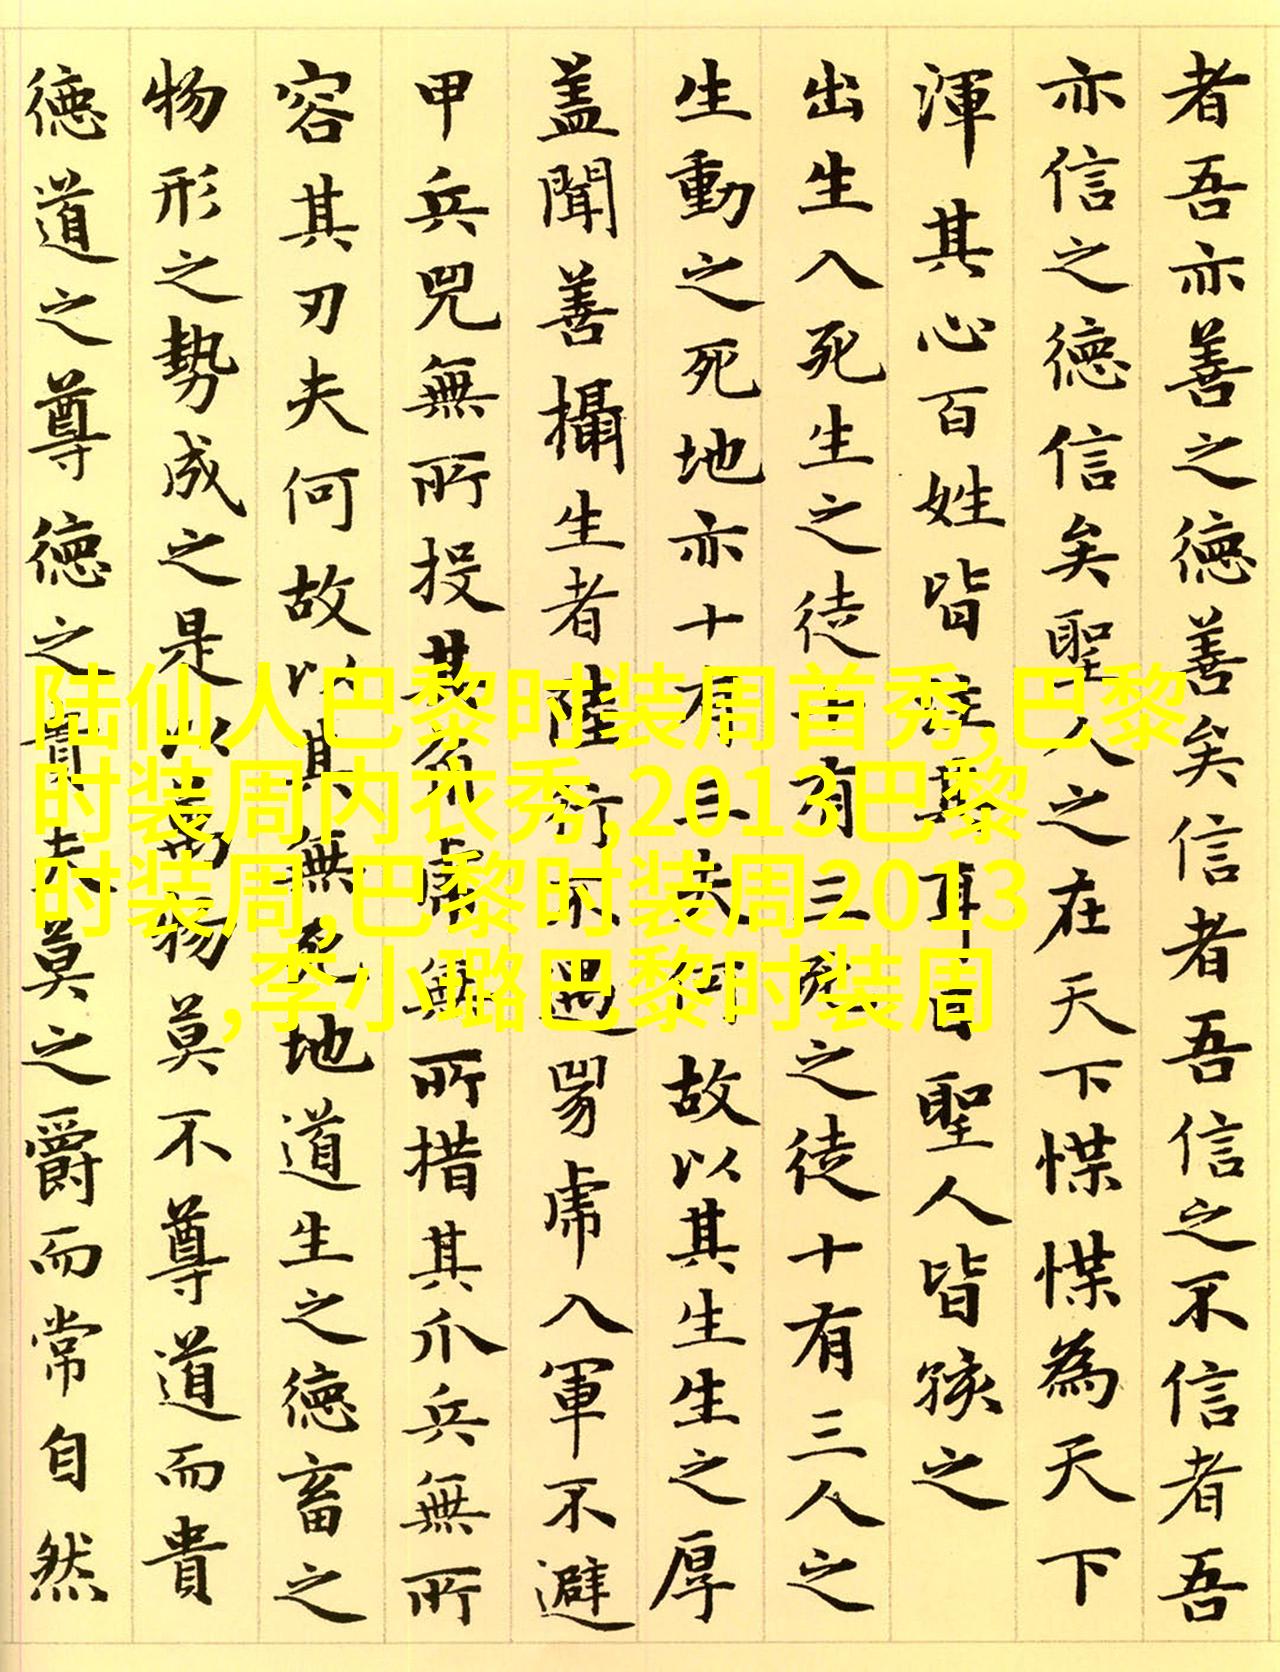 者吾亦善之德善矣信者吾信之不信者吾
亦信之德信矣聖人之在天下惵惵為天下
渾其心百姓皆注其耳目聖人皆孩之
出生入死生之徒十有三死之徒十有三人之
生動之死地亦十有三夫何故以其生生之厚
蓋聞善攝生者陸行不遇兕虎入軍不避
甲兵兕無所投其角虎無所措其爪兵無所
容其刃夫何故以其無死地道生之德畜之
物形之勢成之是以萬物莫不尊道而貴
德道之尊德之貴夫莫之爵而常自然
陆仙人巴黎时装周首秀,巴黎
时装周内衣秀,2013巴黎
时装周,巴黎时装周2013
,李小璐巴黎时装周